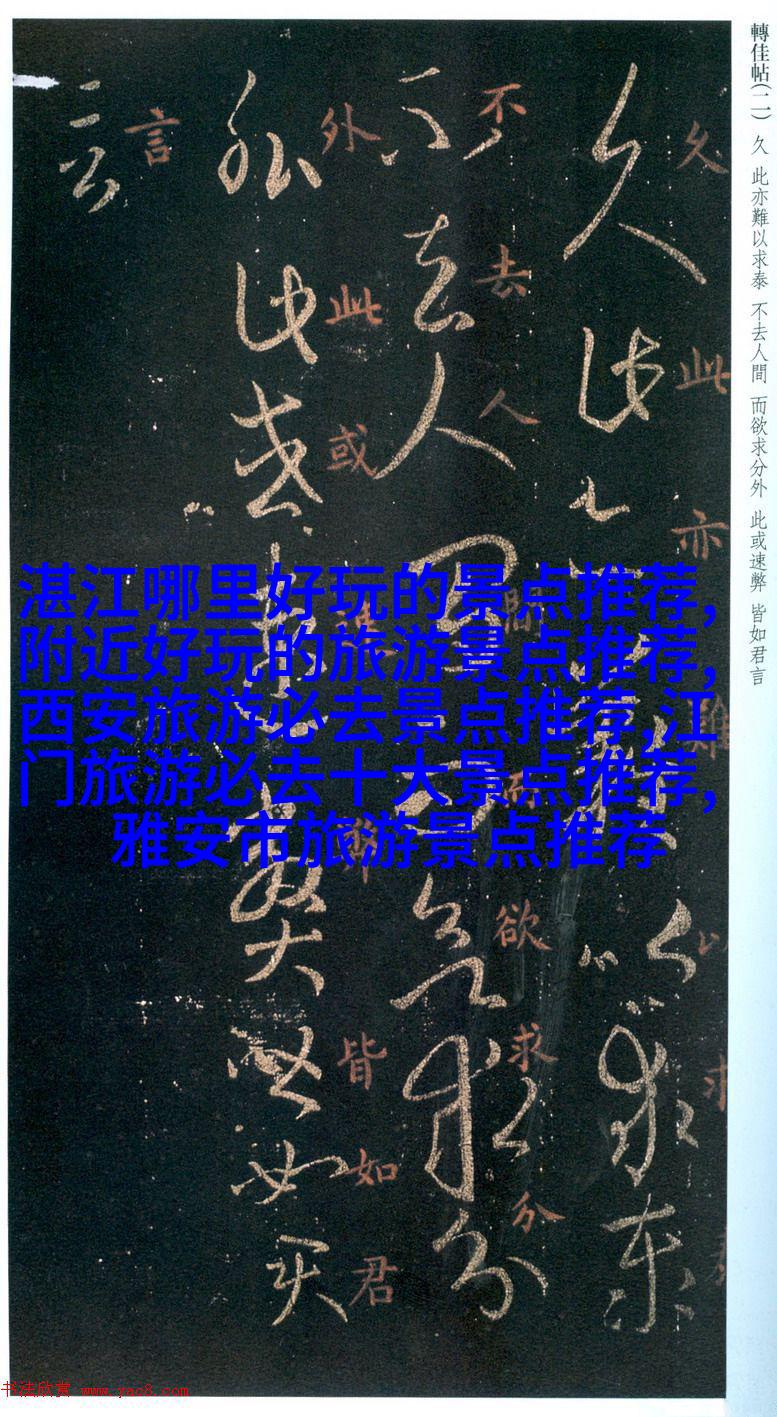 轉佳帖(二) 久 此亦難以求泰 不去人間 而欲求分外 此或速弊 皆如君言
久此亦難以求
不去人間而欲求分
外此或速弊皆如君
言
湛江哪里好玩的景点推荐,
附近好玩的旅游景点推荐,
西安旅游必去景点推荐,江
门旅游必去十大景点推荐,
雅安市旅游景点推荐
书法欣赏 www.yac8.com